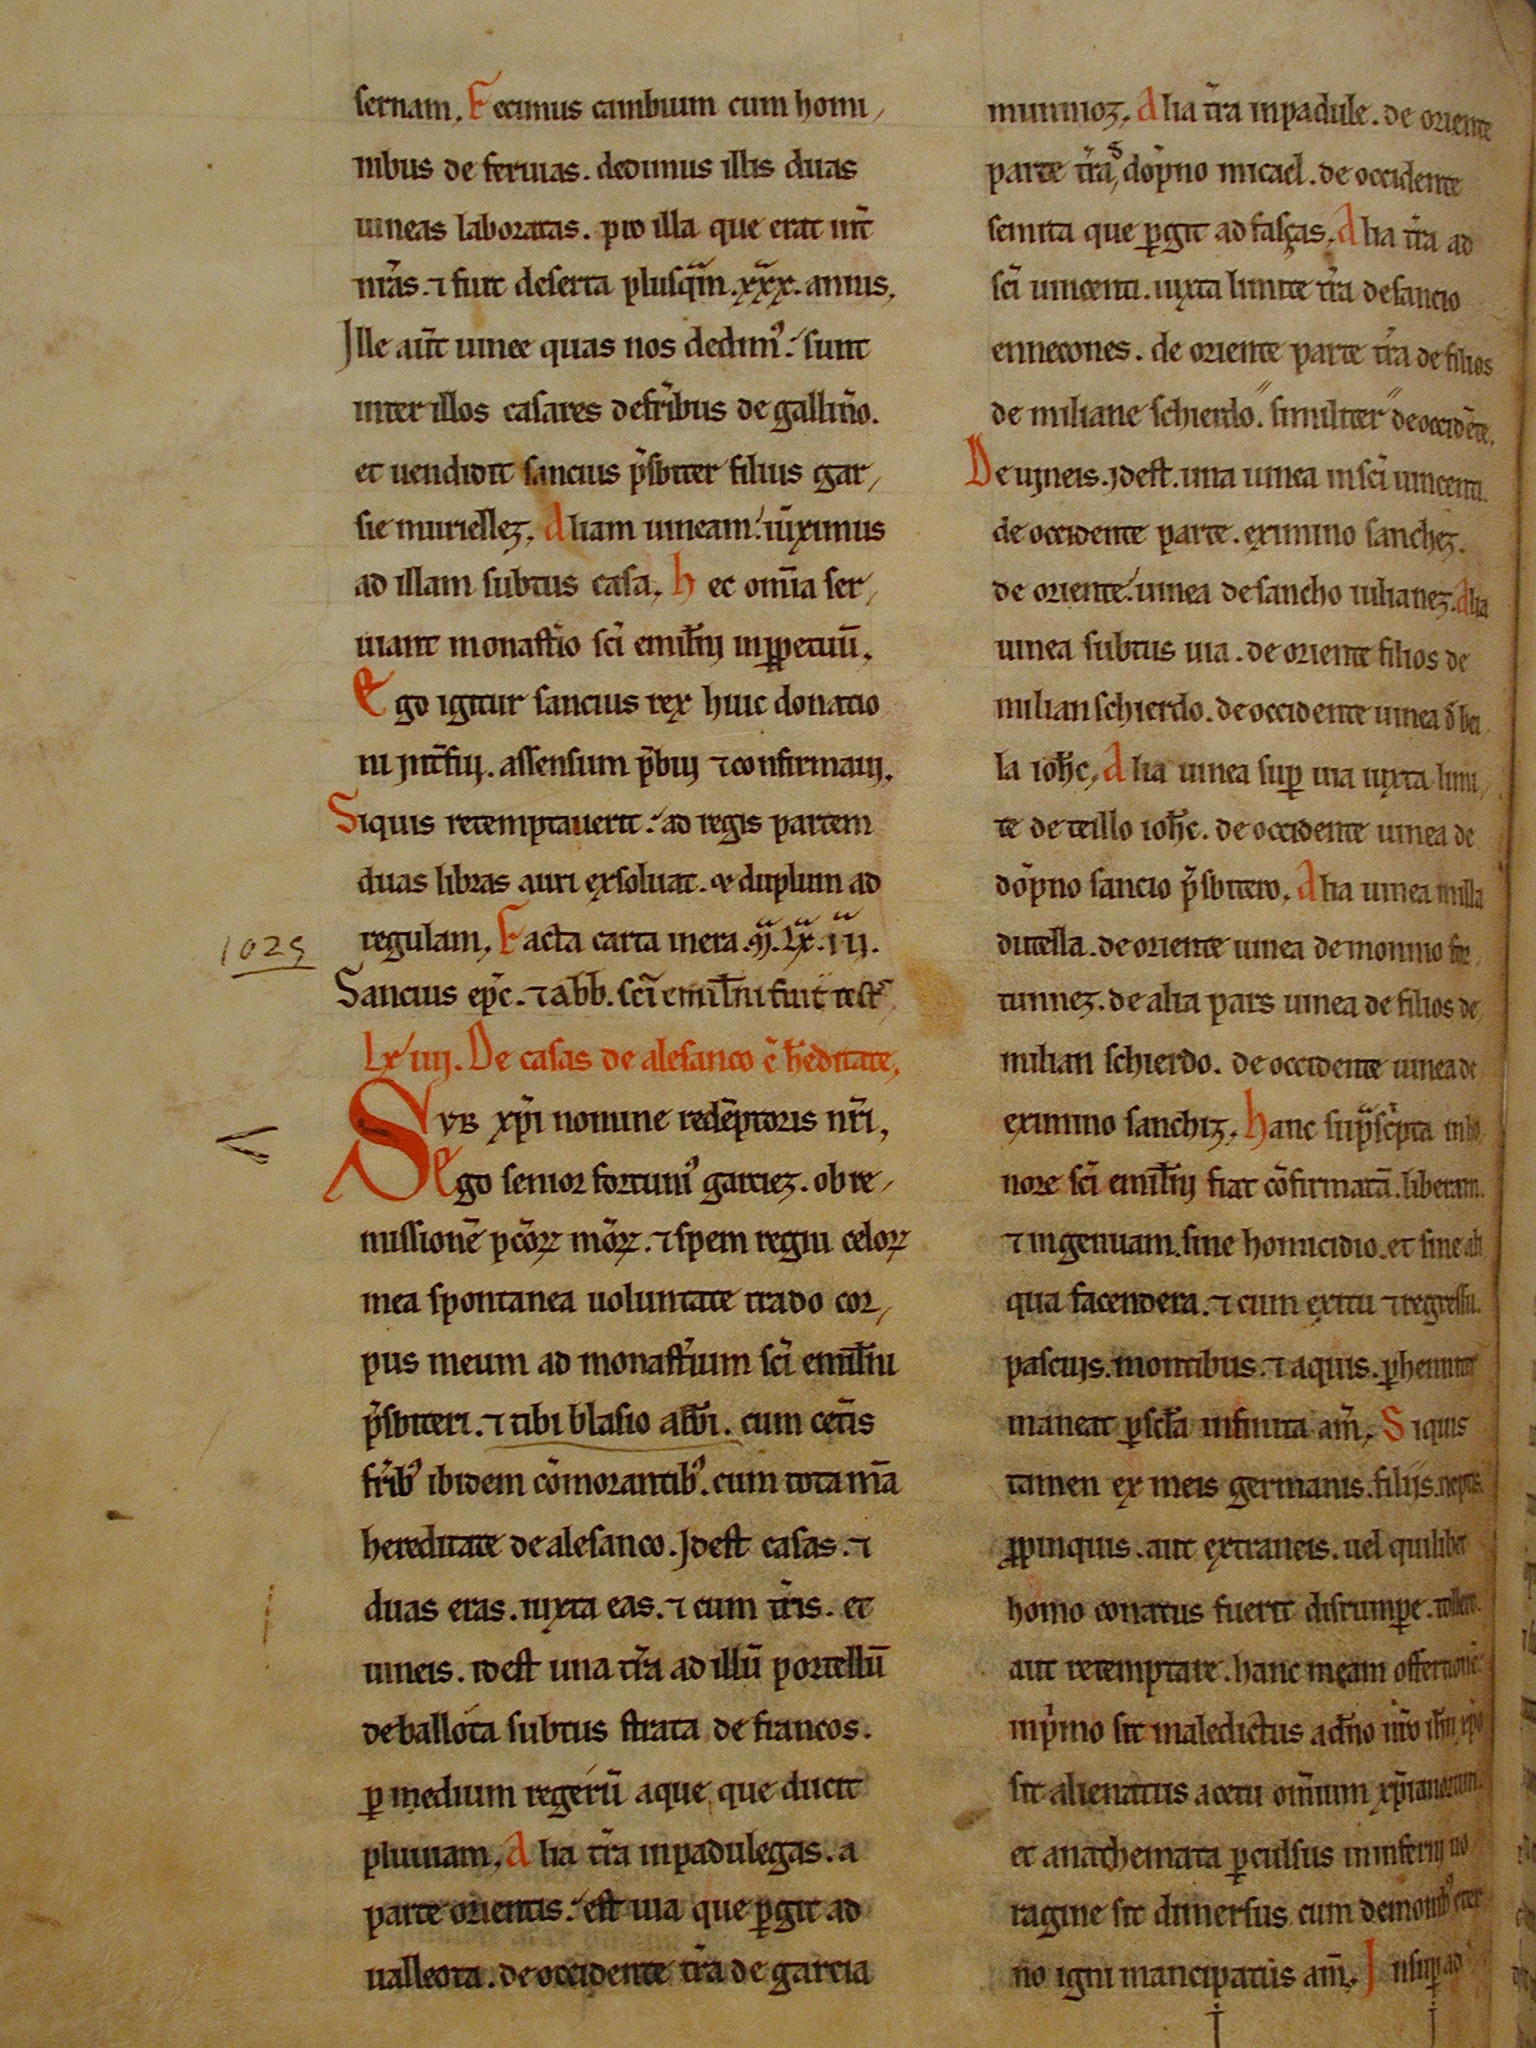 sernam. Fecimus cambium cum homi/
nibus de feruias. dedimus illis duas
uineas laboratas. pro illa que erat int̄
nr̄as. ⁊ fuit deserta plusq̄m .xxx. annis.
Ille aut̄ uinee quas nos dedimꝰ: sunt
inter illos casares de fr̄ibus de galliñо.
et uendidit sancius p̄sbiter filius gar/
sie muriellez. Aliam uineam: iūximus
ad illam subtus casa. Hec om̄ia ser/
uiant monastīo sc̄i emil̄ij inꝑpetuū.
Ego igitur sancius rex huic donatio
ni int̄fui. assensum p̄bui ⁊ confirmaui.
Siquis retemptauerit: ad regis partem
duas libras auri exsoluat. & duplum ad
regulam. Facta carta in era .M̄. LX. III.
1025
Sancius ep̄c. ⁊ abb. sc̄i emil̄ni fuit test̄
LXIIII. De casas de alesanco c̄ h̄editate.
SVB xp̄i nomine redēptoris nr̄i,
Ego senior fortuniꝰ garciez. ob re/
missionē pc̄oꝝ m̄oꝝ. ⁊ spem regni celoꝝ
mea spontanea uoluntate trado cor/
pus meum ad monast̄ium sc̄i emil̄ni
p̄sbiteri. ⁊ tibi blasio abb̄i. cum cet̄is
fr̄ibꝰ ibidem cōmorantibꝰ. cum tota m̄a
hereditate de alesanco. Idest casas. ⁊
duas eras. iuxta eas. ⁊ cum tr̄is. et
uineis. idest una tr̄a ad illū portellū
de ballota subtus strata de francos.
ꝑ medium regerū aque que ducit
pluuiam. Alia tr̄a in padulegas. a
parte orientis: est uia que ꝑgit ad
ualleota. de occidente tr̄a de garcia
munnioz. Alia tr̄a in padule. de oriente
parte tr̄a s dōpno micael. de occidente
semita que ꝑgit ad fasças. Alia tr̄a ad
sc̄i uincenti. iuxta limite tr̄a de sancio
ennecones. de oriente parte tr̄a de filios
de miliane schierdo. similiter de occidēte.
De uineis. Idest. una uinea in sc̄i uincenti.
de occidente parte. eximino sanchez.
de oriente: uinea de sancho iulianez. Alia
uinea subtus uia. de oriente filios de
milian schierdo. de occidente uinea d̄ bei
la ioh̄c. Alia uinea suꝑ uia iuxta limi/
te de teillo ioh̄c. de occidente uinea de
dōpno sancio p̄sbitero. Alia uinea in illa
dutella. de oriente uinea de monnio for
tunnez. de alia pars uinea de filios de
milian schierdo. de occidente uinea de
eximino sanchiz. Hanc sup̄sc̄pta in ho
nore sc̄i emil̄ij fiat cōfirmatā. liberam.
⁊ ingenuam. sine homicidio. et sine ali
qua facendera. ⁊ cum exitu ⁊ regressu.
pascuis. montibus. ⁊ aquis. ꝑhenniter
maneat ꝑ sc̄la infinita am̄. Siquis
tamen ex meis germanis. filijs. neptis.
ꝓpinquis. aut extraneis. uel quilibet
homo conatus fuerit disrumꝑe. tollere.
aut retemptare. hanc meam offertionē:
inp̄mo sit maledictus a dn̄o nr̄o ih̄u xp̄o
sit alienatus a cetu om̄ium xp̄ianorum.
et anathemata ꝑculsus in inferni uo
ragine sit dimersus cum demonibꝰ eter
no igni mancipatus am̄. Insuꝑ ad